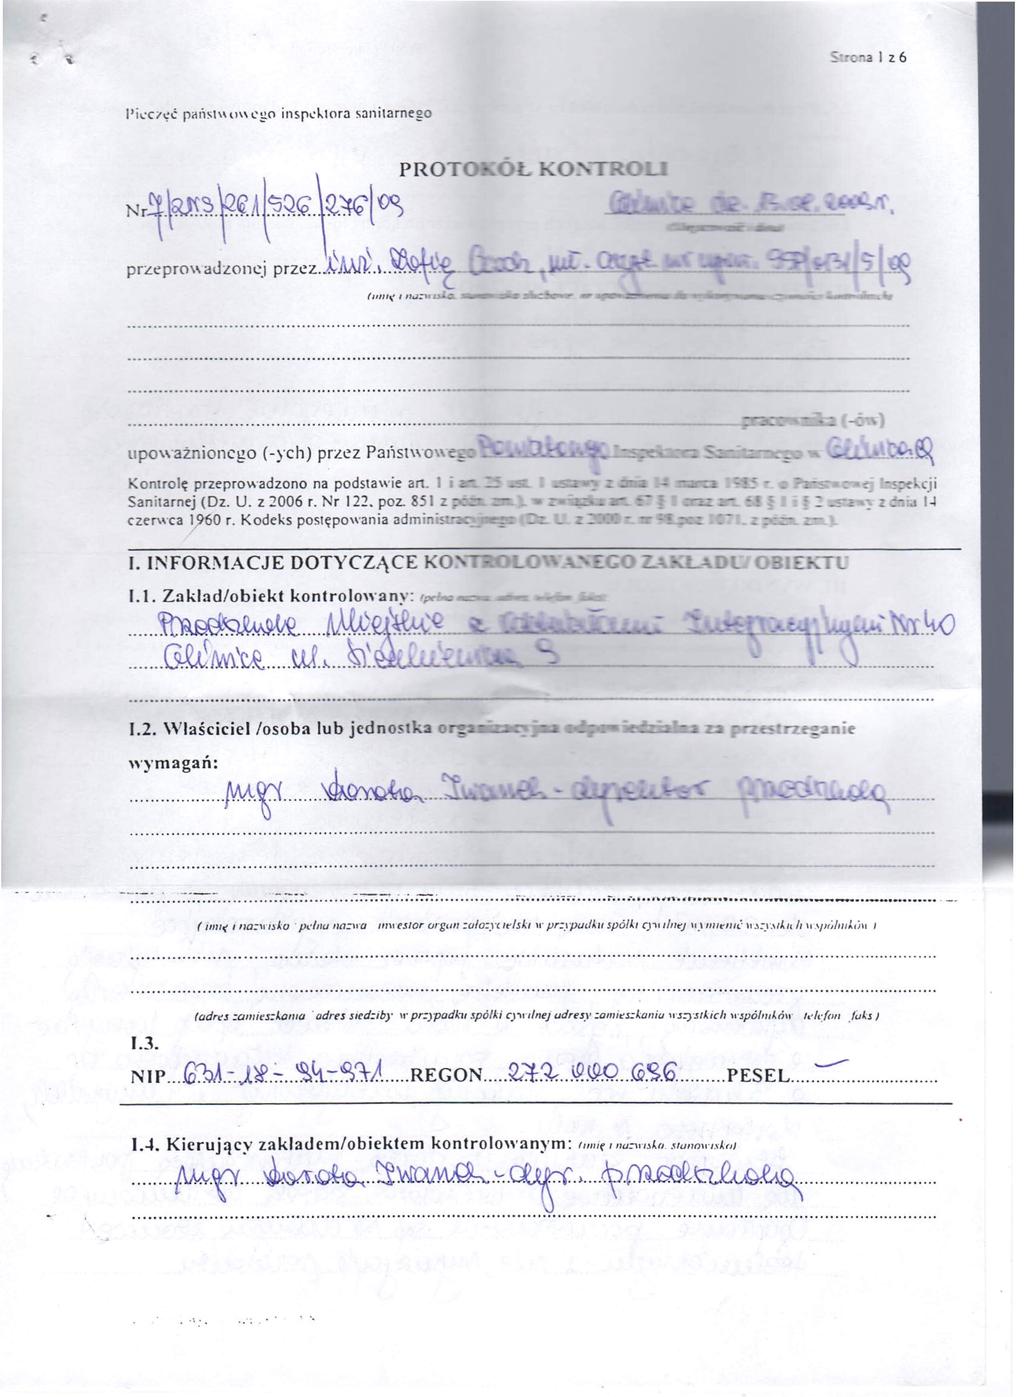 Strona 1 z 6
Pieczęć państwowego inspektora sanitarnego
PROTOKÓŁ KONTROLI
Nr 7/2NS/261/526/276/09
Gliwice 2009r.
(Miejscowość i data)
przeprowadzonej przez inż. Zofię mł. asyst. nr upow.
(imię i nazwisko, stanowisko służbowe, nr upoważnienia do wykonywania czynności kontrolnych)
pracownika (-ów)
upoważnionego (-ych) przez Państwowego Powiatowego Inspektora Sanitarnego w Gliwicach
Kontrolę przeprowadzono na podstawie art. 1 i art. 25 ust. 1 ustawy z dnia 14 marca 1985 r. o Państwowej Inspekcji
Sanitarnej (Dz. U. z 2006 r. Nr 122, poz. 851 z późn. zm.), w związku art. 67 § 1 oraz art. 68 § 1 i § 2 ustawy z dnia 14
czerwca 1960 r. Kodeks postępowania administracyjnego (Dz. U. z 2000 r. nr 98 poz 1071, z późn. zm.).
I. INFORMACJE DOTYCZĄCE KONTROLOWANEGO ZAKŁADU/OBIEKTU
I.1. Zakład/obiekt kontrolowany: (pełna nazwa, adres, telefon, faks)
Przedszkole Miejskie z Oddziałami Integracyjnymi Nr 40
Gliwice ul.
I.2. Właściciel /osoba lub jednostka organizacyjna odpowiedzialna za przestrzeganie
wymagań:
mgr Dorota Iwanek - dyrektor przedszkola
( imię i nazwisko pełna nazwa inwestor organ założycielski w przypadku spółki cywilnej wymienić wszystkich wspólników )
(adres zamieszkania adres siedziby w przypadku spółki cywilnej adresy zamieszkania wszystkich wspólników telefon faks )
I.3.
NIP 631-18-94-971 REGON 272 000 696 PESEL —
I.4. Kierujący zakładem/obiektem kontrolowanym: (imię i nazwisko, stanowisko)
mgr Dorota Iwanek - dyr. przedszkola